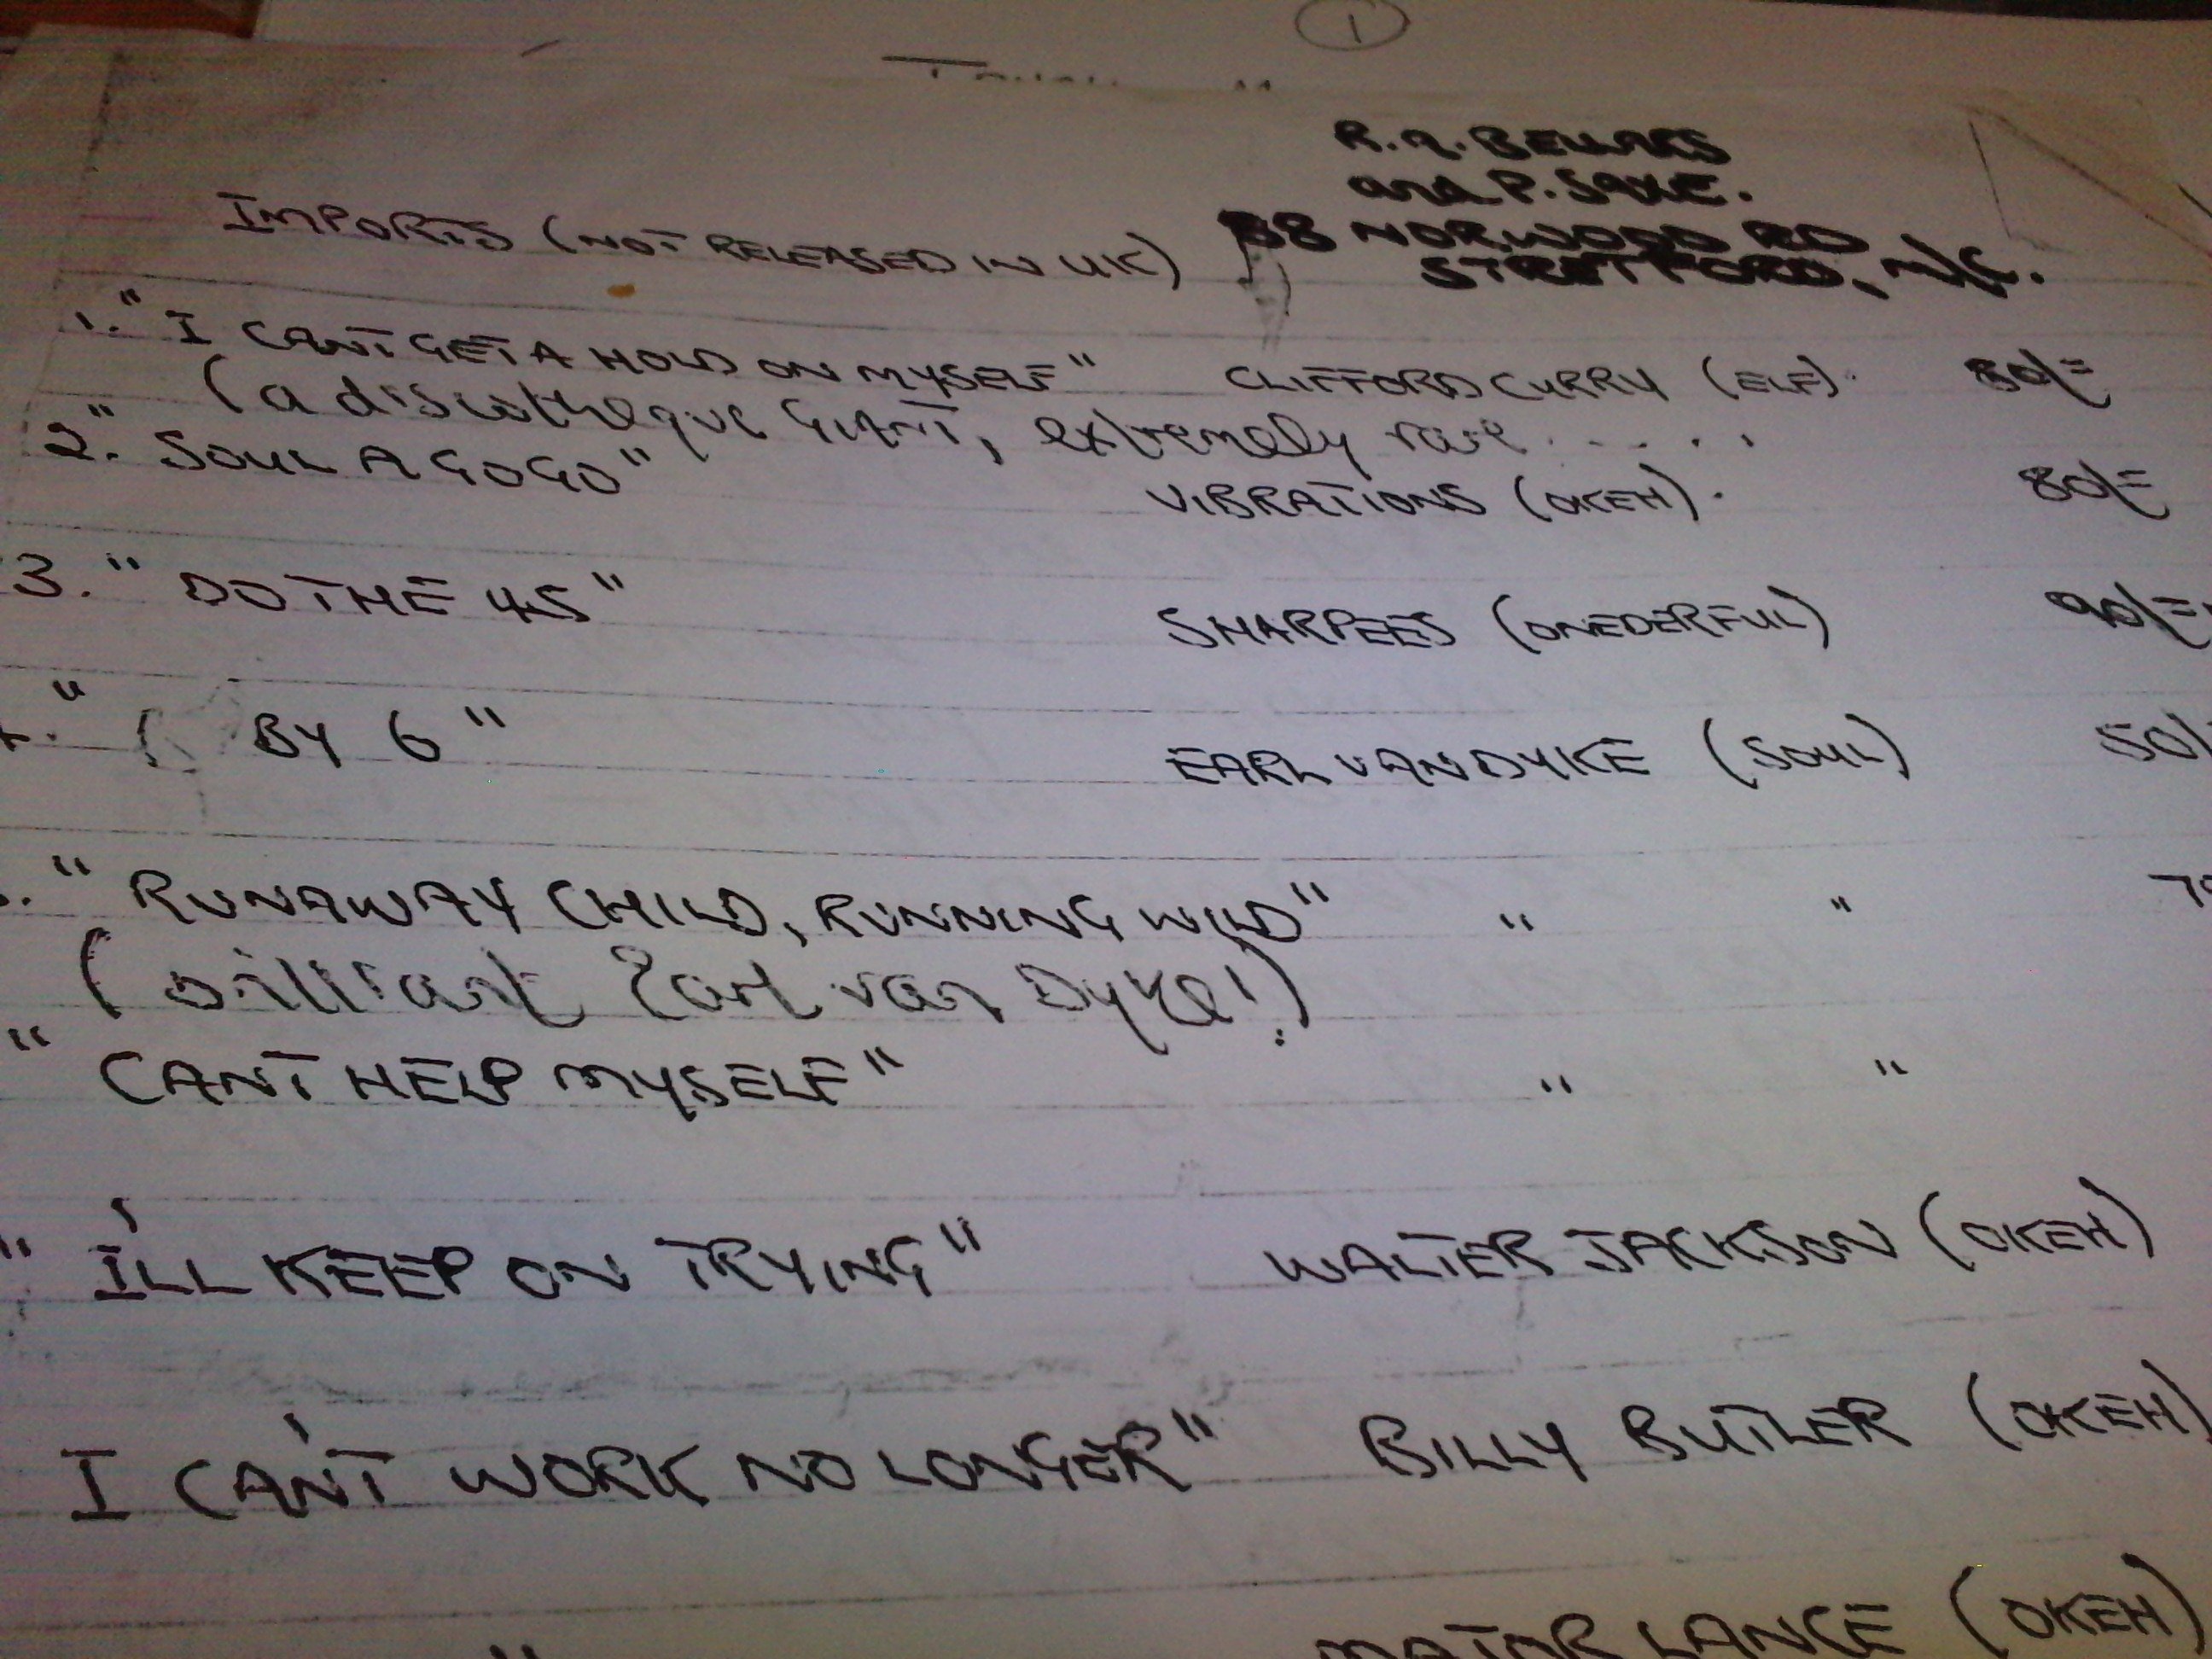 1
R.A. BELLARS
and P. SAXE.
IMPORTS (NOT RELEASED IN UK)
38 NORWOOD RD
STRETFORD, M/C.
1. "I CANT GET A HOLD ON MYSELF" CLIFFORD CURRY (ELF). 80/=
(a discotheque GIANT, extremely rare . . . . .
2. "SOUL A GO GO" VIBRATIONS (OKEH). 80/=
3. "DO THE 45" SHARPEES (ONEDERFUL) 90/=
" BY 6" EARL VAN DYKE (SOUL) 50/
" RUNAWAY CHILD, RUNNING WILD" " "
(brilliant Earl van Dyke!)
" CANT HELP MYSELF" " "
" I'LL KEEP ON TRYING" WALTER JACKSON (OKEH)
I CAN'T WORK NO LONGER" BILLY BUTLER (OKEH)
" MAJOR LANCE (OKEH)